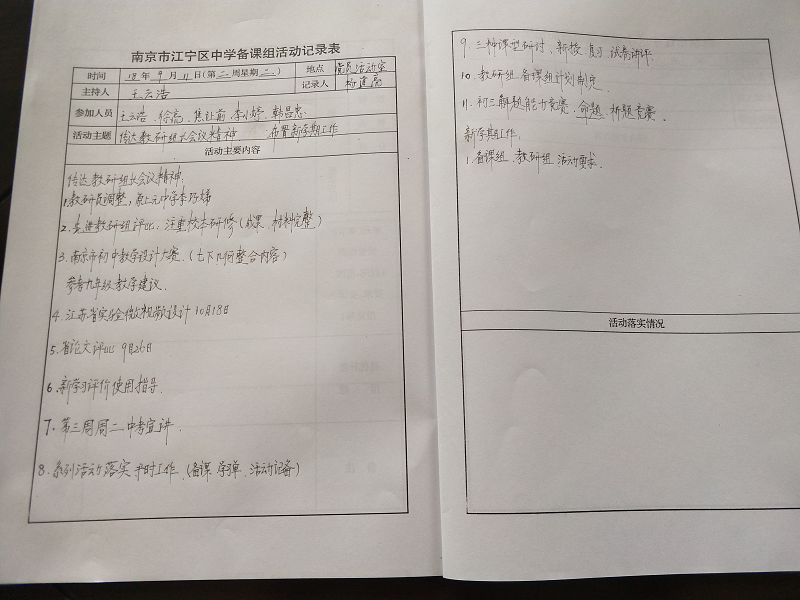 南京市江宁区中学备课组活动记录表
时间 18年9月11日(第二周星期二) 地点 党员活动室
主持人 王云浩 记录人
参加人员 王云浩、徐亮、焦让前、李小婷、韩昌惠
活动主题 传达教研组长会议精神 布置新学期工作
活动主要内容
传达教研组长会议精神:
1.教研员调整,原上元中学李巧娣
2.先进教研组评比,注重校本研修(成果、材料完整)
3.南京市初中教学设计大赛.(七下几何整合内容)
参考九年级教学建议.
4.江苏省实验微视频设计 10月18日
5.省论文评比 9月26日
6.新学习评价使用指导.
7.第三周周二中考宣讲.
8.系列活动落实平时工作.(备课 导弹 活动记备)
9.三种课型研讨、新授 复习 试卷讲评.
10.教研组 备课组计划制定.
11.初三解题能力竞赛、命题、析题竞赛.
新学期工作:
1.备课组、教研组 活动要求.
活动落实情况